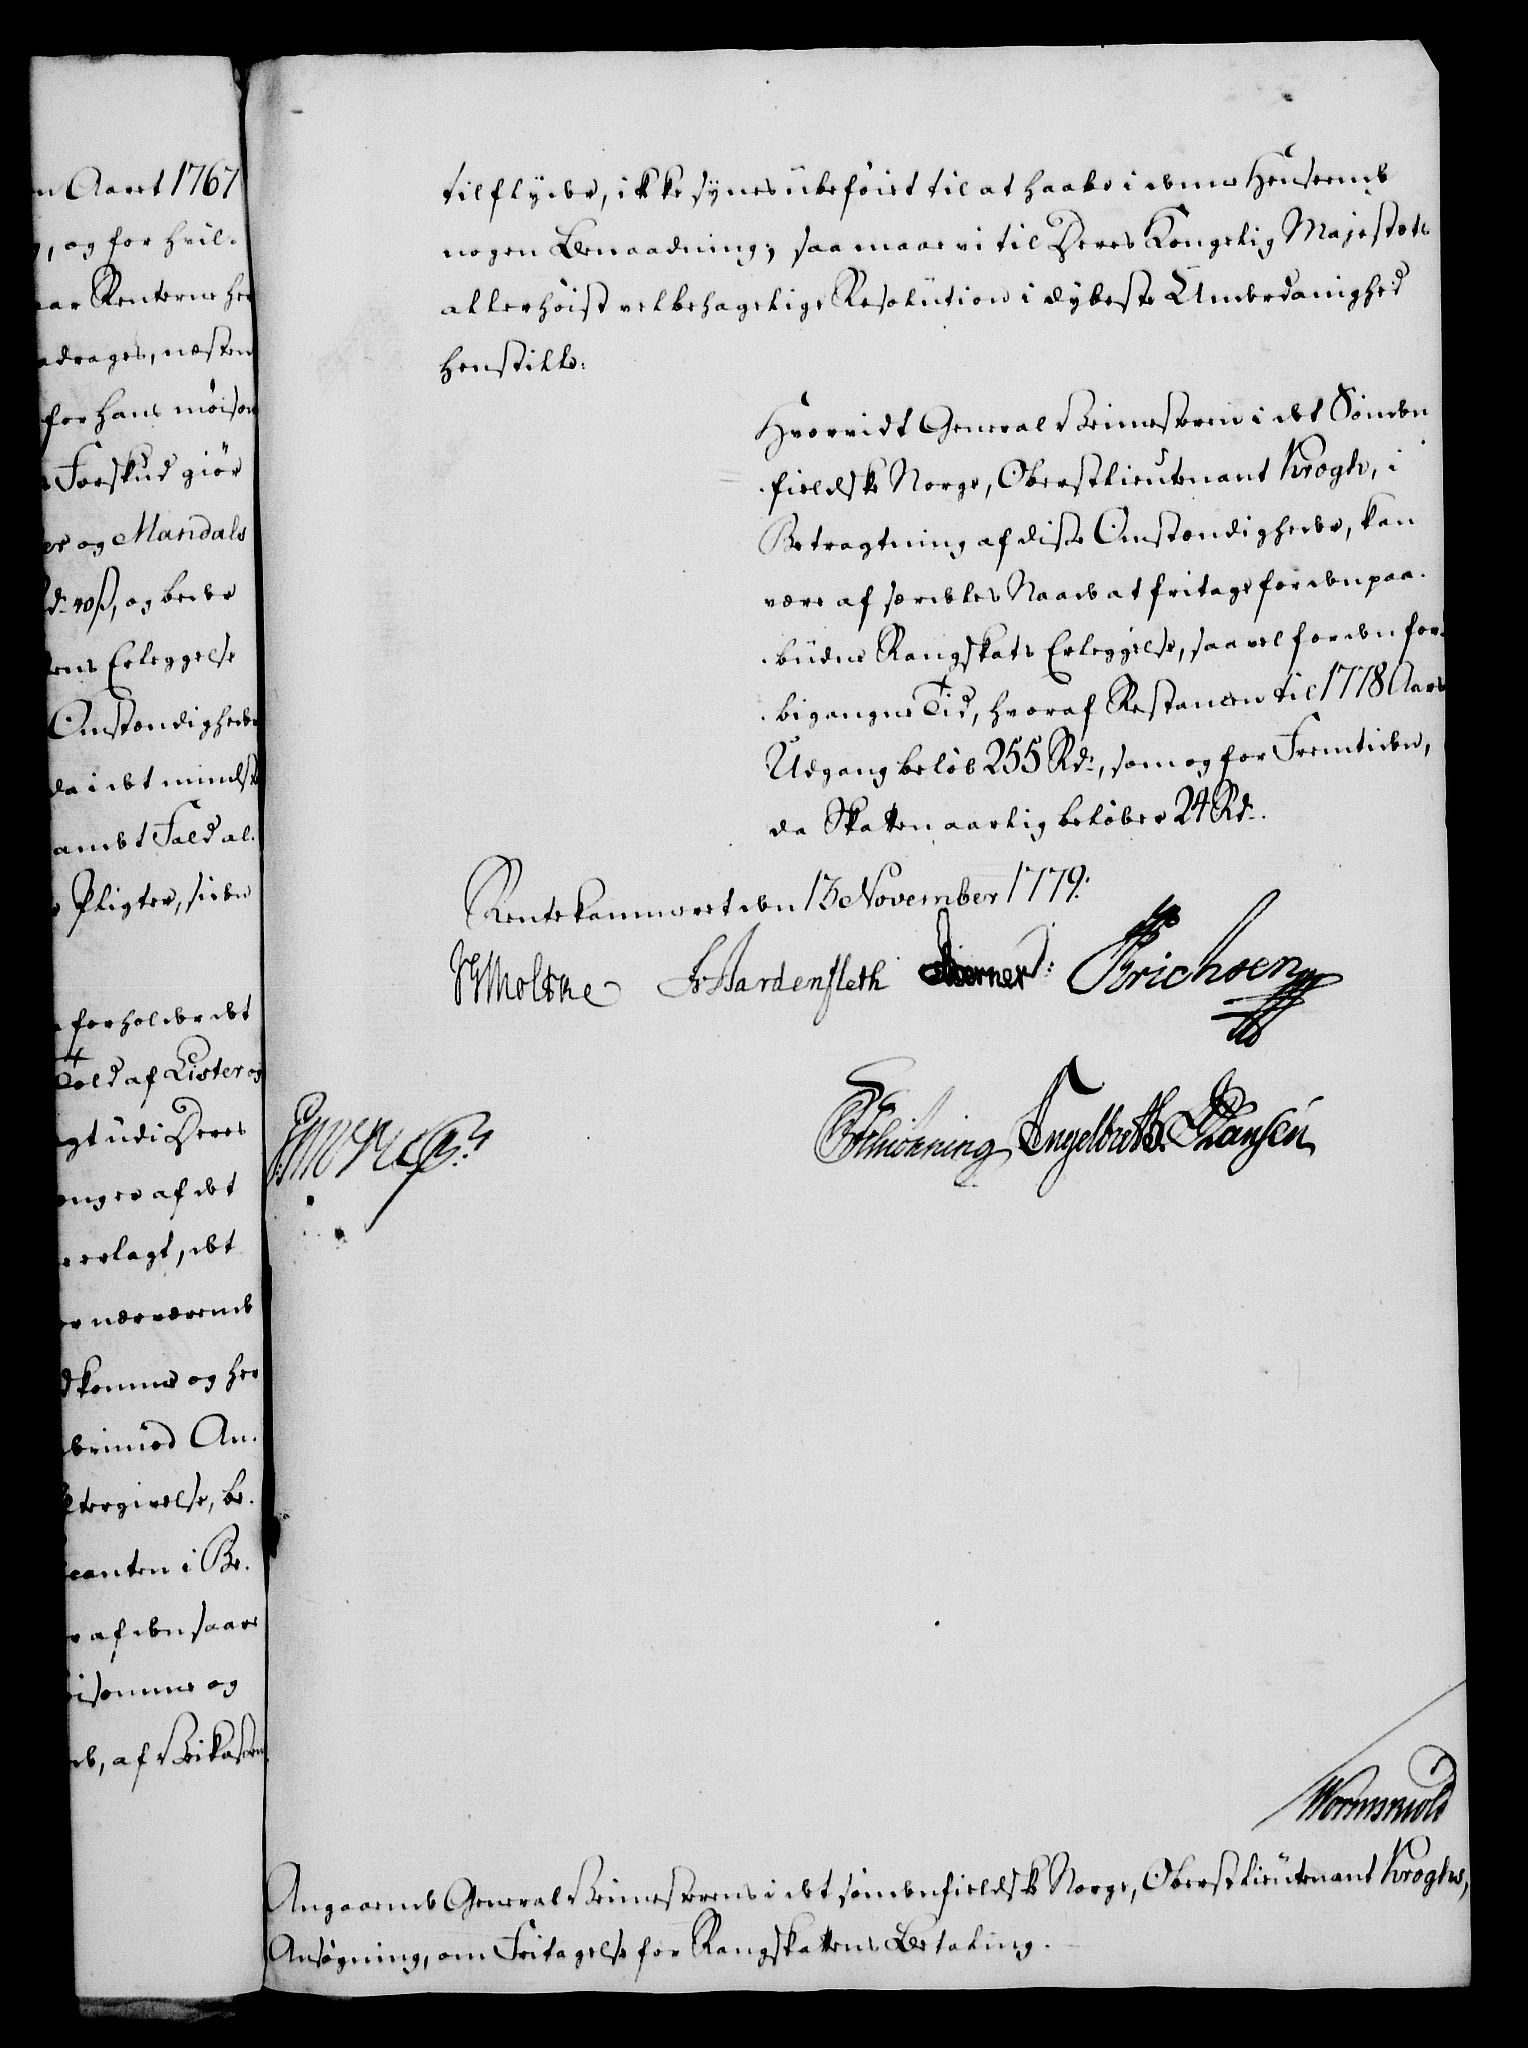 n Aaret 1767
, og for hvil-
aar Renterne her
adrages, næsten
for hans møisom
Forskud giør
er og Mandals
d: 40 ß, og beder
ens Erleggelse
Omstændigheder
da i det mindste
andet Fald al-
Pligter, siden
forholder det
Told af Lister og
gt udi Deres
enger af det
erlagt, det
r nærværende
dkomme og her
derimod An-
ftergivelse, be-
canten i Be-
r af den saare
isomme og
de, af Veikassen
tilflyder, ikke synes ubeføiet til at haabe i denne Henseende
nogen Benaadning; saa maae vi til Deres Kongelig Majestæts
allerhøist velbehagelige Resolution i dybeste Underdanighed
henstille:
Hvorvidt General Veimesteren i det Sønden-
fieldske Norge, Oberstlieutenant Krogh, i
Betragtning af disse Omstændigheder, kan
være af særdeles Naade at fritage for den paa-
budne Rangskats Erleggelse, saavel for den for-
bigangne Tid, hvoraf Restancen til 1778 Aars
Udgang beløb 255 Rd:, som og for Fremtiden,
da Skatten aarlig beløber 24 Rd:.
Rentekammeret den 13 November 1779.
Moltke Fr. Hardenfleth Berner: Erichsen
Schiønning Engelbreth. Hansen
Wormskiold
Angaaende General Veimesterens i det søndenfieldske Norge, Oberstlieutenant Kroghs,
Ansøgning, om Fritagelse for Rangskattens Betaling.